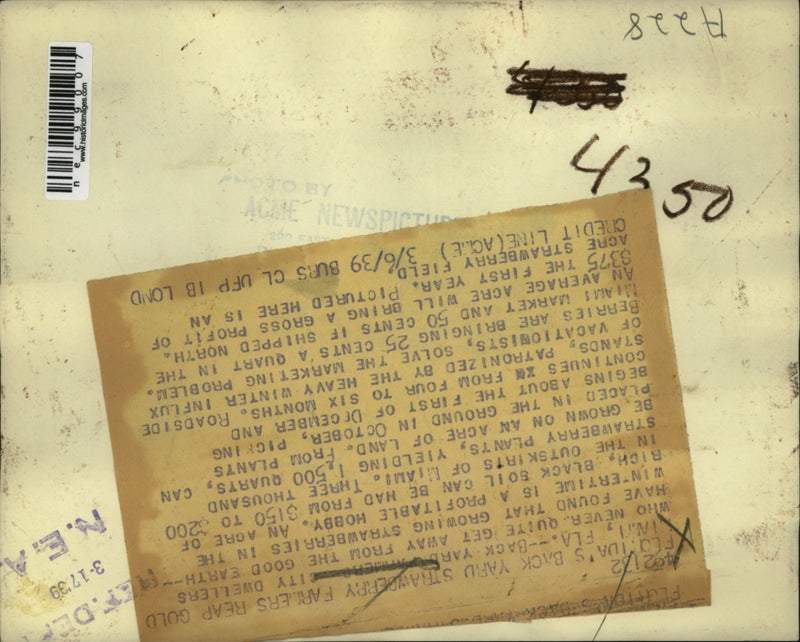 A228
4350
necC99007
www.historicimages.com
PHOTO BY
ACME NEWSPICTURE
FLORIDA'S BACK YARD STRAWBERRY FARMERS REAP GOLD
MIAMI, FLA.--BACK YARD CITY DWELLERS--
WHO NEVER QUITE GET AWAY FROM THE GOOD EARTH--
HAVE FOUND THAT GROWING STRAWBERRIES IN THE
WINTERTIME IS A PROFITABLE HOBBY. AN ACRE OF
RICH, BLACK SOIL CAN BE HAD FROM $150 TO $200
IN THE OUTSKIRTS OF MIAMI. THREE THOUSAND
STRAWBERRY PLANTS, YIELDING 1,500 QUARTS, CAN
BE GROWN ON AN ACRE OF LAND. FROM PLANTS
PLACED IN THE GROUND IN OCTOBER, PICKING
BEGINS ABOUT THE FIRST OF DECEMBER AND
CONTINUES FROM FOUR TO SIX MONTHS. ROADSIDE
STANDS, PATRONIZED BY THE HEAVY WINTER INFLUX
OF VACATIONISTS, SOLVE THE MARKETING PROBLEM.
BERRIES ARE BRINGING 25 CENTS A QUART IN THE
MIAMI MARKET AND 50 CENTS IF SHIPPED NORTH.
AN AVERAGE ACRE WILL BRING A GROSS PROFIT OF
$375 THE FIRST YEAR. PICTURED HERE IS AN
ACRE STRAWBERRY FIELD
CREDIT LINE(ACME) 3/6/39 BURS CL UFP IB LOND
N.E.A.
3-17'39
REF. DEPT